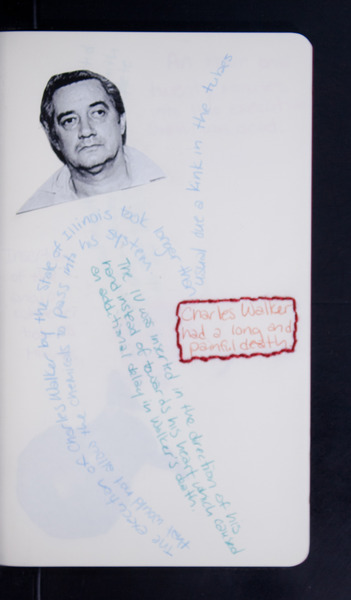 The execution of Charles Walker by the State of Illinois took longer than usual due a kink in the tubes
that would not allow the chemicals to pass into his system.
The IV was inserted in the direction of his
hand instead of towards his heart which caused
an additional delay in Walker's death.
Charles Walker
had a long and
painful death